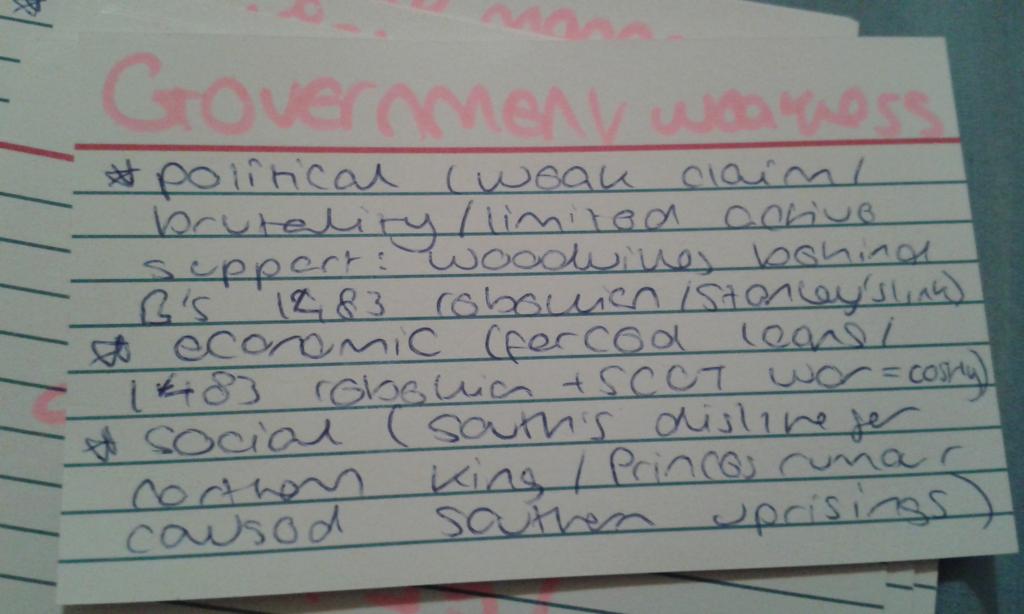 Government weakness
* political (weak claim/
brutality/limited active
support: Woodvilles behind
B's 1483 rebellion/Stanley's link)
* economic (forced loans/
1483 rebellion + SCOT war = costly)
* social (South's dislike for
northern King/Princes rumour
caused southern uprisings)